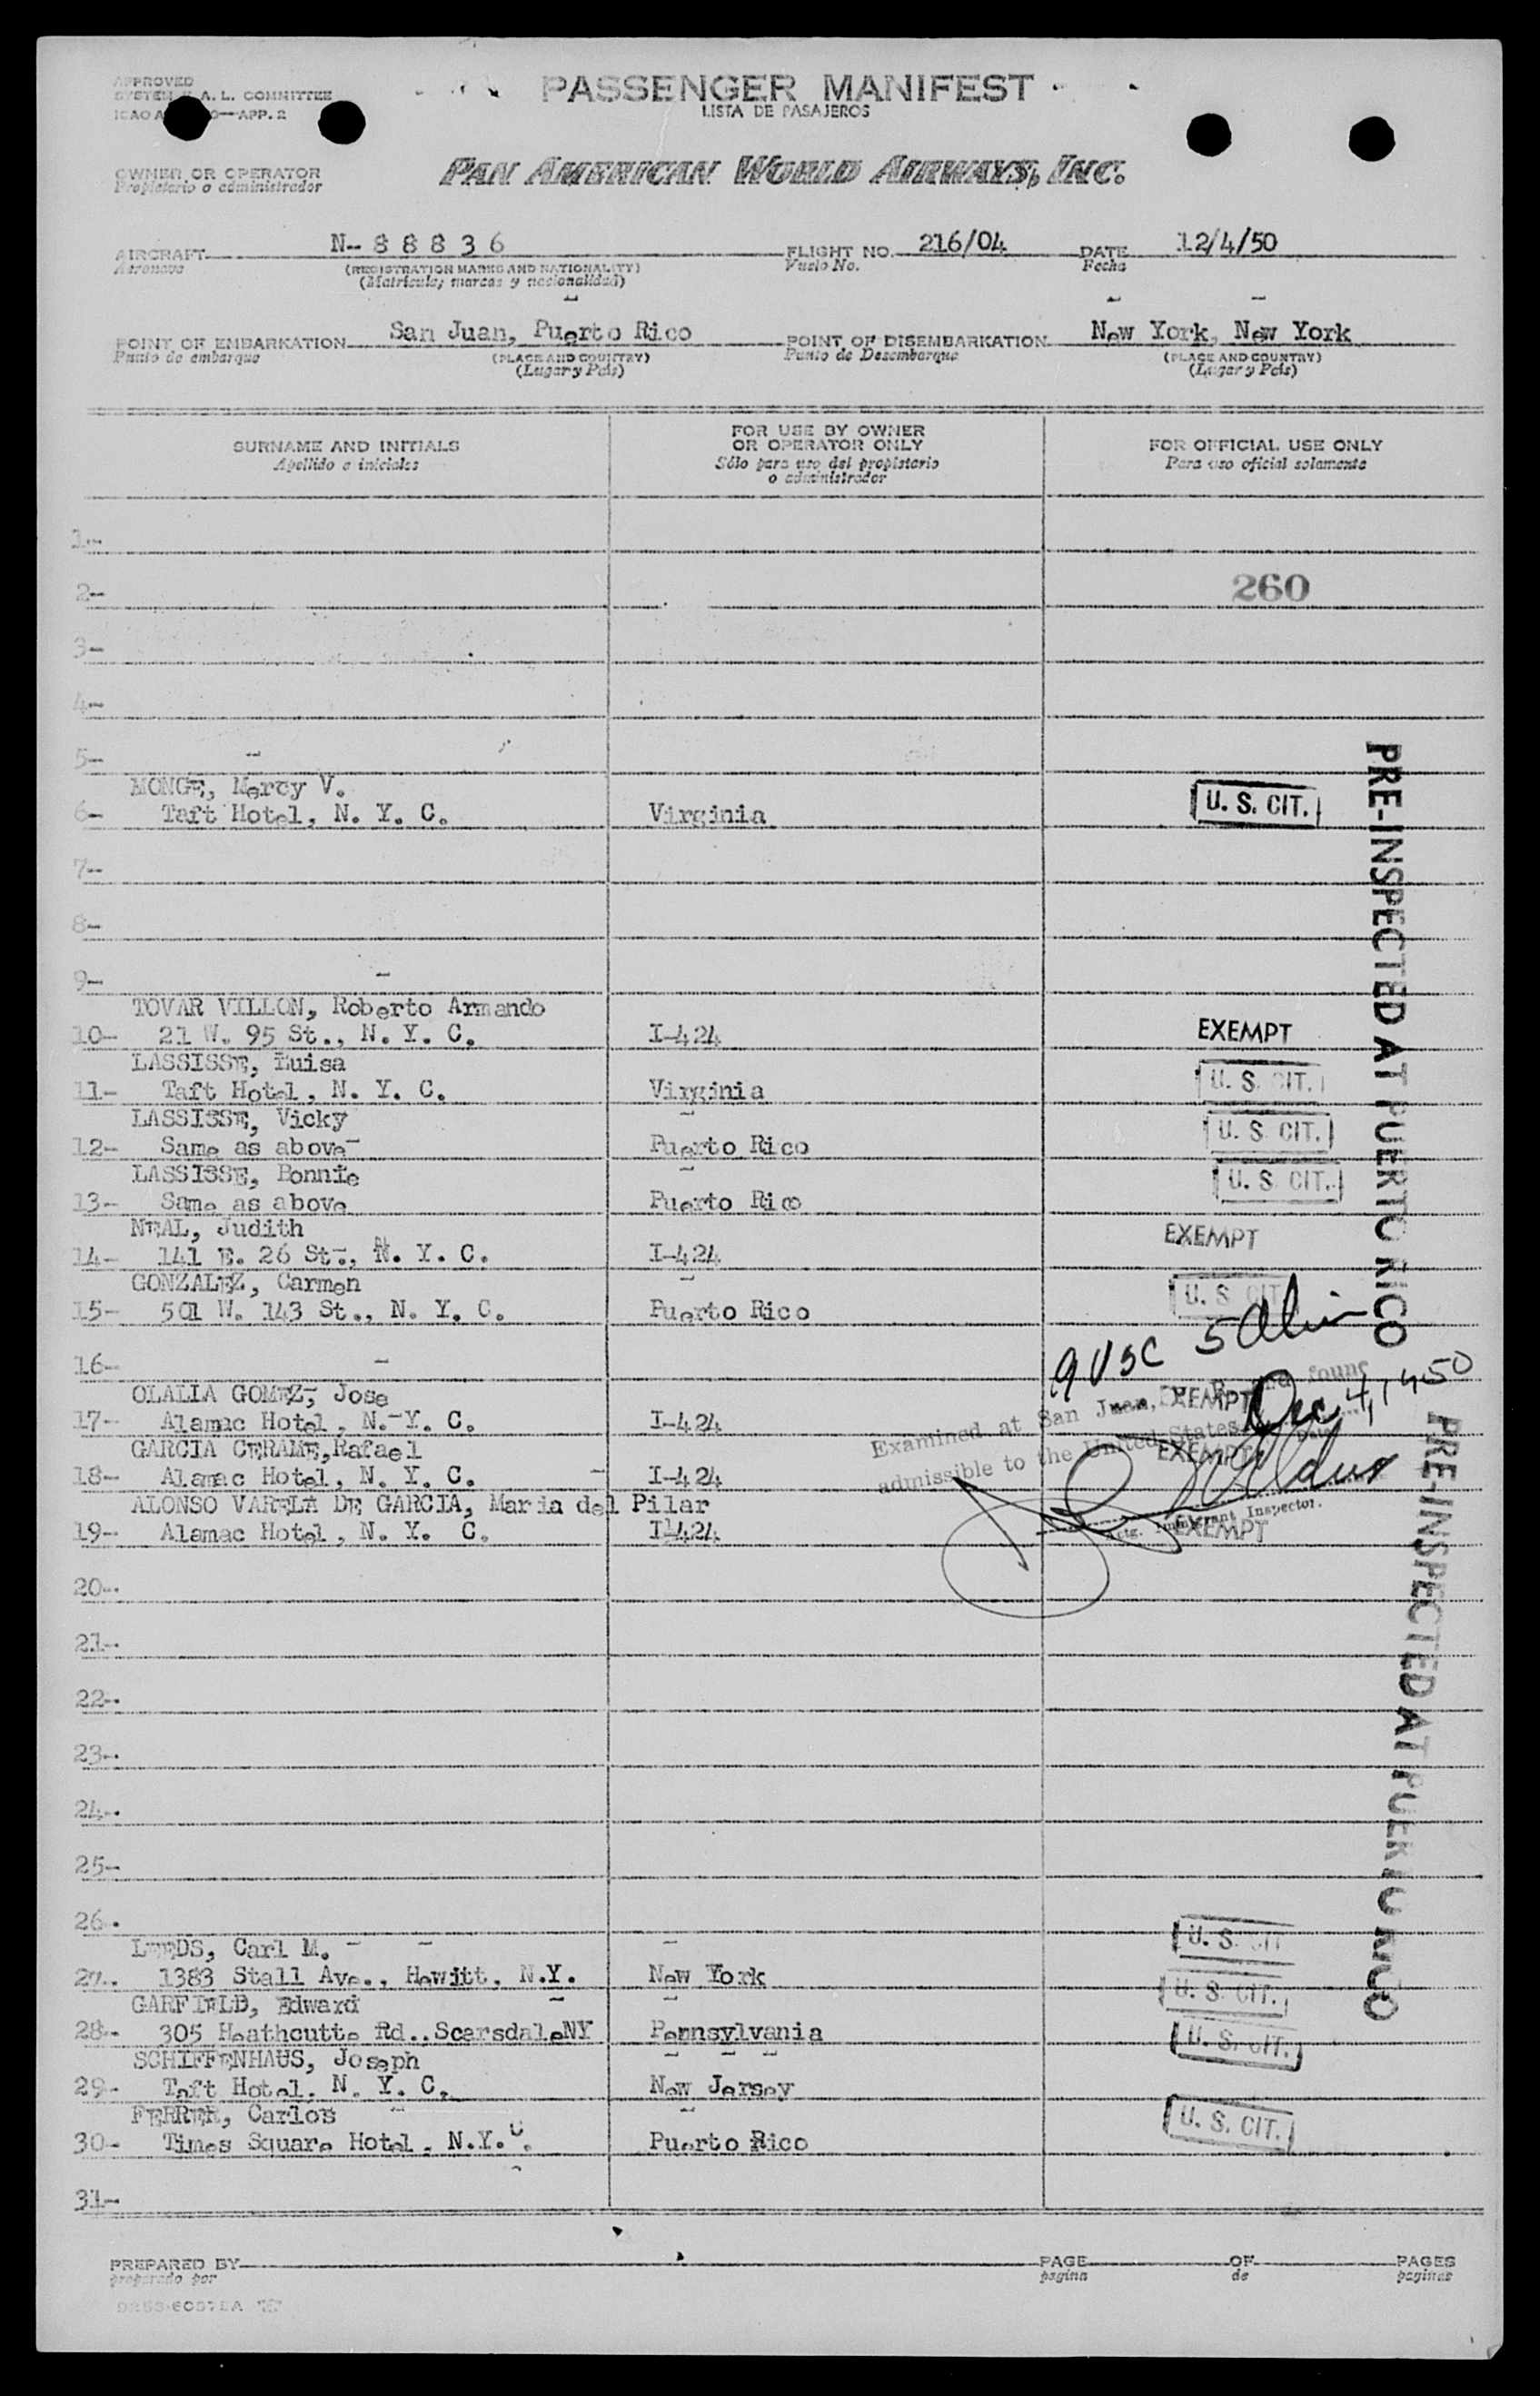 APPROVED
SYSTEM F. A. L. COMMITTEE
ICAO APP. 2
PASSENGER MANIFEST
LISTA DE PASAJEROS
OWNER OR OPERATOR
Propietario o administrador
PAN AMERICAN WORLD AIRWAYS, INC.
AIRCRAFT N-88836 FLIGHT NO. 216/04 DATE 12/4/50
Aeronave (REGISTRATION MARKS AND NATIONALITY) Vuelo No. Fecha
(Matricula; marcas y nacionalidad)
POINT OF EMBARKATION San Juan, Puerto Rico POINT OF DISEMBARKATION New York, New York
Punto de embarque (PLACE AND COUNTRY) Punto de Desembarque (PLACE AND COUNTRY)
(Lugar y País) (Lugar y País)
SURNAME AND INITIALS FOR USE BY OWNER OR OPERATOR ONLY FOR OFFICIAL USE ONLY
Apellido e iniciales Sólo para uso del propietario o administrador Para uso oficial solamente
1-
2- 260
3-
4-
5-
MONGE, Mercy V.
6- Taft Hotel, N. Y. C. Virginia U. S. CIT.
7-
8-
9-
TOVAR VILLON, Roberto Armando
10- 21 W. 95 St., N. Y. C. I-424 EXEMPT
LASSISSE, Luisa
11- Taft Hotel, N. Y. C. Virginia U. S. CIT.
LASSISSE, Vicky
12- Same as above Puerto Rico U. S. CIT.
LASSISSE, Bonnie
13- Same as above Puerto Rico U. S. CIT.
NEAL, Judith
14- 141 E. 26 St., N. Y. C. I-424 EXEMPT
GONZALEZ, Carmen
15- 501 W. 143 St., N. Y. C. Puerto Rico U. S. CIT.
9 USC 5 Alien
16-
OLALLA GOMEZ, Jose
17- Alamac Hotel, N. Y. C. I-424 EXEMPT
GARCIA CERAME, Rafael
18- Alamac Hotel, N. Y. C. I-424 EXEMPT
ALONSO VARELA DE GARCIA, Maria del Pilar
19- Alamac Hotel, N. Y. C. I-424 EXEMPT
Examined at San Juan, P. R. and found
admissible to the United States Dec 4, 1950
Date
Actg. Immigrant Inspector.
20-
21-
22-
23-
24-
25-
26-
LEEDS, Carl M. U. S. CIT
27- 1383 Stall Ave., Hewitt, N.Y. New York
GARFIELD, Edward U. S. CIT.
28- 305 Heathcutte Rd..ScarsdaleNY Pennsylvania
SCHIFFENHAUS, Joseph U. S. CIT.
29- Taft Hotel. N. Y. C. New Jersey
FERRER, Carlos U. S. CIT.
30- Times Square Hotel, N.Y.C. Puerto Rico
31-
PRE-INSPECTED AT PUERTO RICO
PRE-INSPECTED AT PUERTO RICO
PREPARED BY PAGE OF PAGES
preparado por pagina de paginas